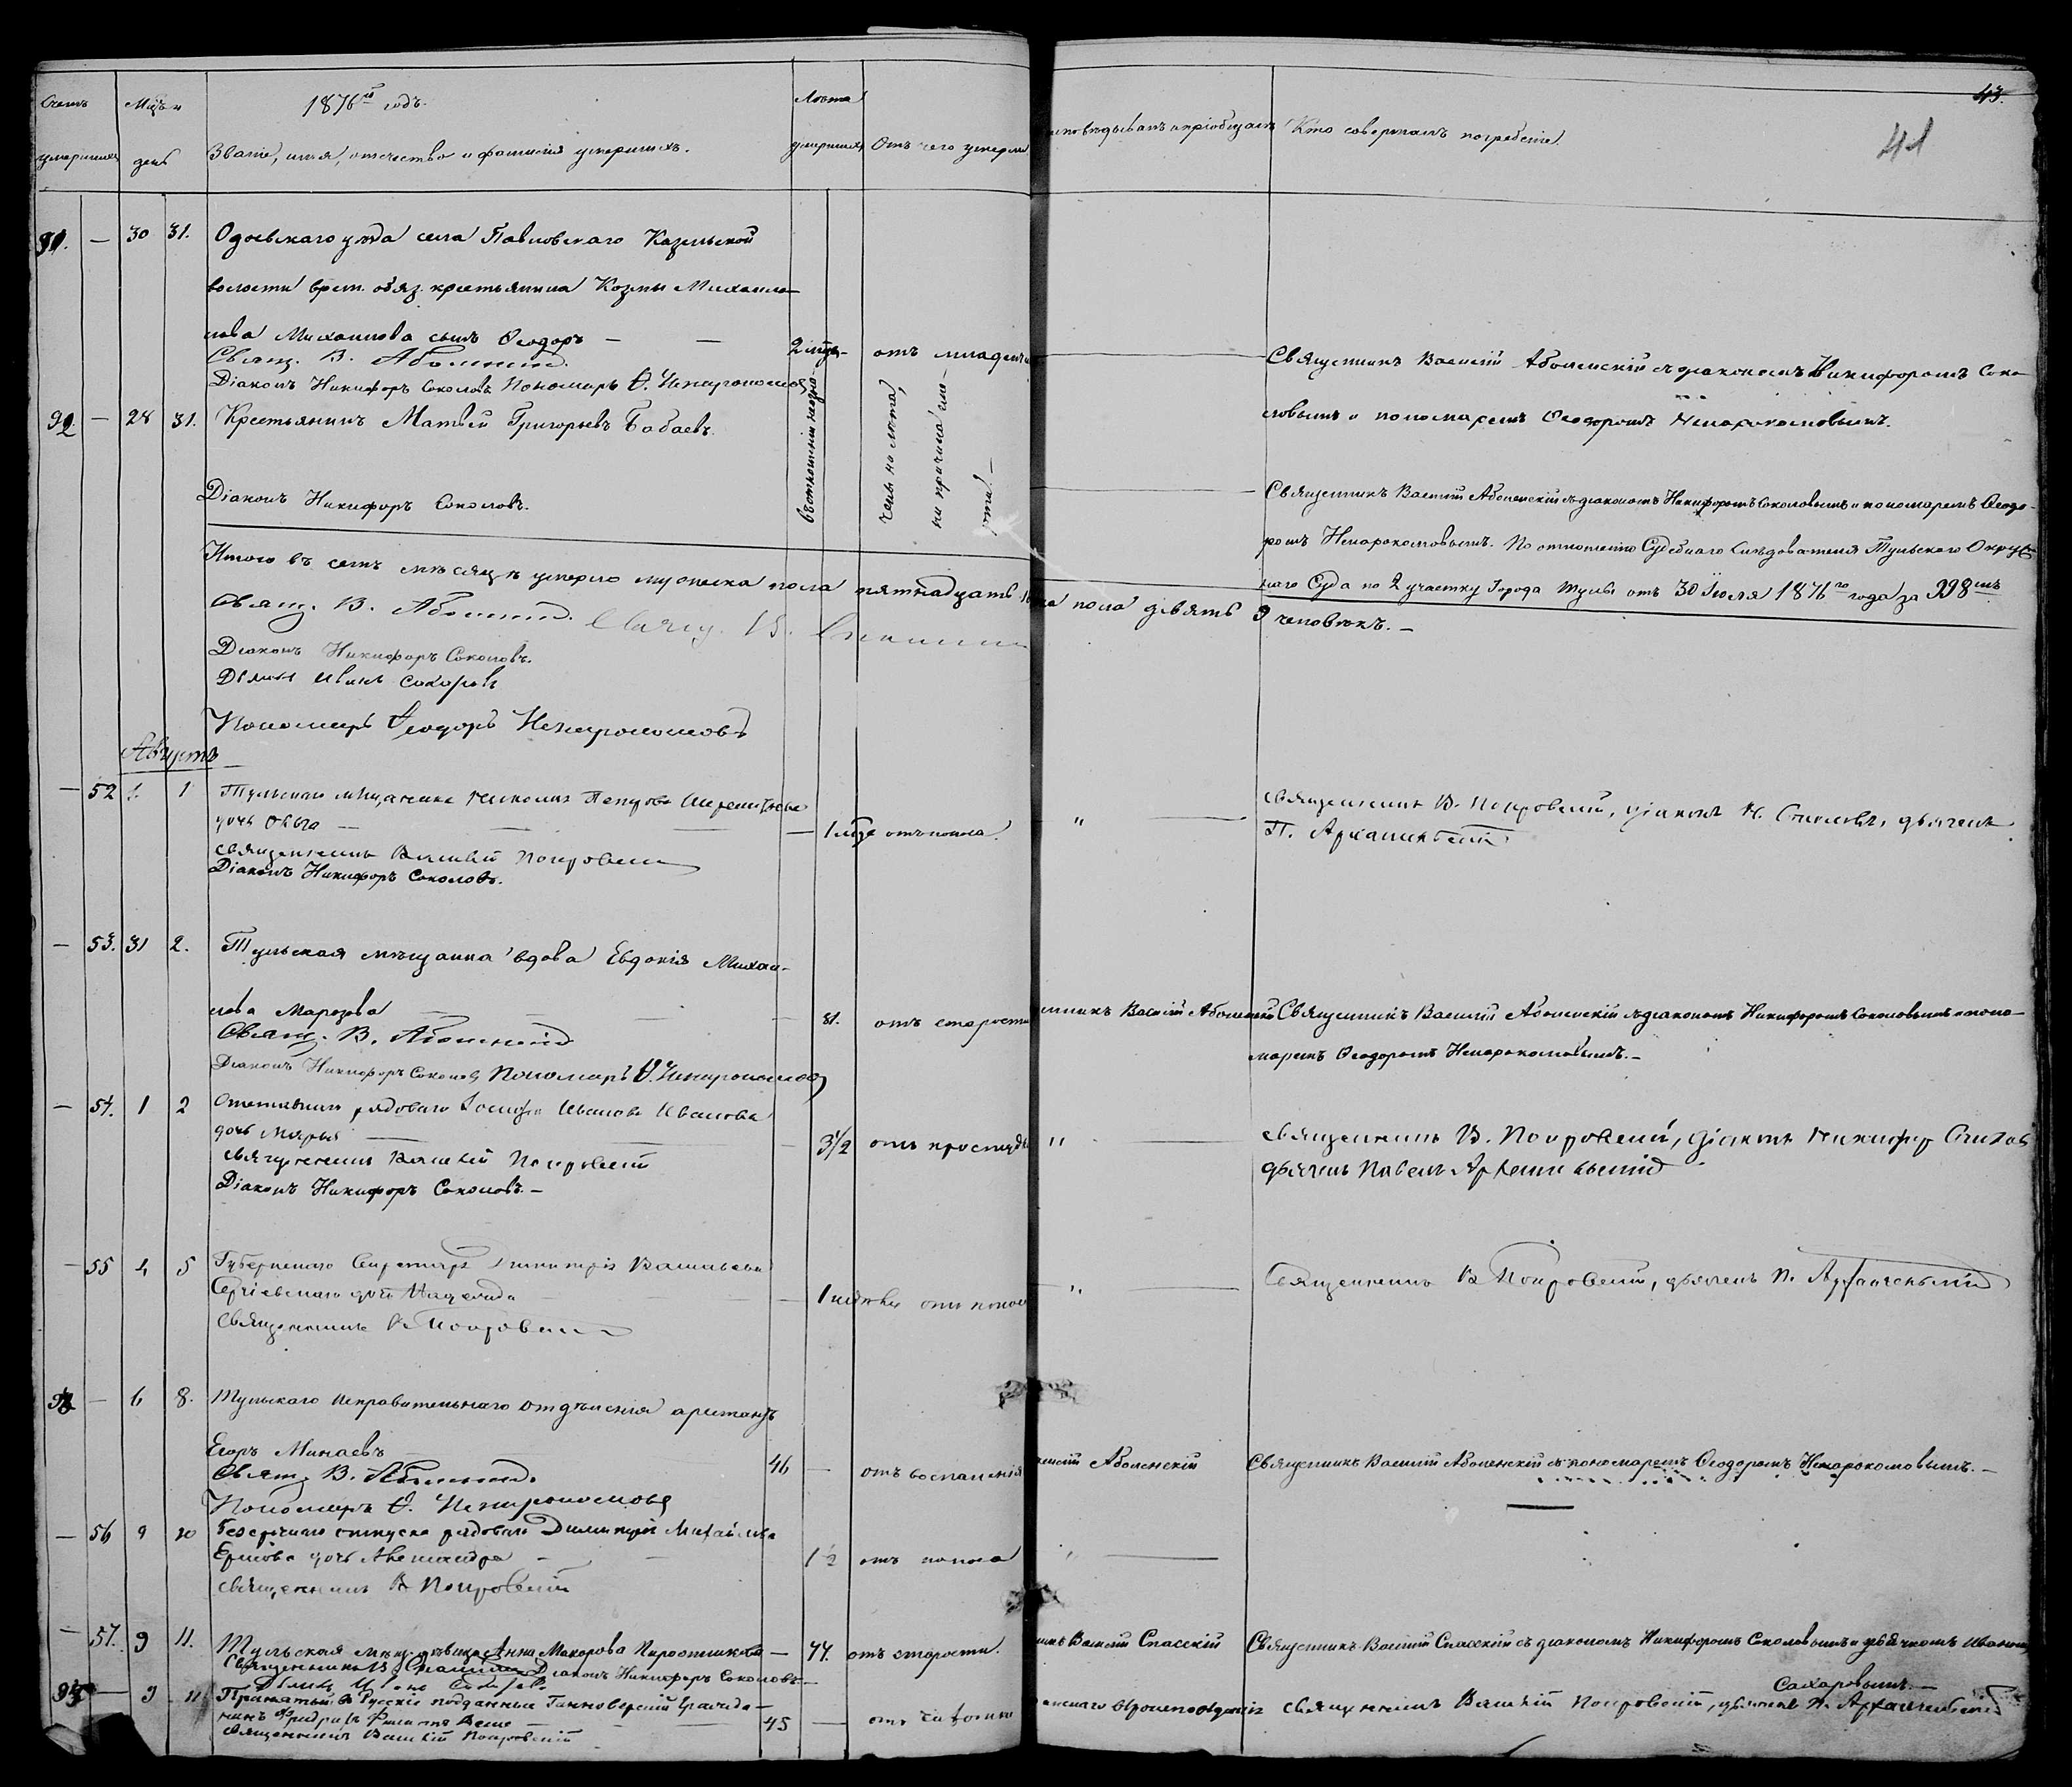 Счетъ умершихъ
Мѣс. и день
1876й годъ.
Званіе, имя, отчество и фамилія умершихъ.
Лѣта умершихъ
Отъ чего умерли
исповѣдывалъ и пріобщалъ
Кто совершалъ погребеніе.
43.
41
91. — 30 31. Одоевскаго уѣзда села Павловскаго
волости врем. обяз. крестьянина Козмы Михаило-
лова Михаилова сынъ Ѳеодоръ — —
2 отъ младенч
Свящ. В. Аболенскій
Діаконъ Никифоръ Соколовъ Пономарь Ѳ. Ненарокомовъ
Священникъ Василій Аболенскій съ діакономъ Никифоромъ Соко-
ловымъ и пономаремъ Ѳеодоромъ Ненарокомовымъ.
92. — 28 31. Крестьянинъ Матвѣй Григорьевъ Бабаевъ.
въ отношеніи не означены
ни лѣта,
ни причина смерти. —
Діаконъ Никифоръ Соколовъ.
Священникъ Василій Аболенскій съ діакономъ Никифоромъ Соколовымъ и пономаремъ Ѳеодо-
ромъ Ненарокомовымъ. По отношенію Судебнаго Слѣдователя Тульскаго Окруж
наго Суда по 2 участку Города Тулы отъ 30 Іюля 1876го года за 398мъ
Итого въ семъ мѣсяцѣ умерло мужеска пола пятнадцать пола девять 9 человѣкъ. —
Свящ. В. Аболенскій Свящ. В. Спасскій
Діаконъ Никифоръ Соколовъ.
Иванъ Сахаровъ
Пономарь Ѳеодоръ Ненарокомовъ
Августъ
— 52 1. 1 Тульскаго мѣщанина Николая Петрова
дочь Ольга — — —
— 1 отъ поноса. "
Священникъ Василій Покровскій
Діаконъ Никифоръ Соколовъ.
Священникъ В. Покровскій, діаконъ Н. Соколовъ, дьячекъ
П. Архангельскій
— 53. 31 2. Тульская мѣщанка вдова Евдокія Михаи-
лова Марозова — — —
81. отъ старости
Свящ. В. Аболенскій
Діаконъ Никифоръ Соколовъ Пономарь Ѳ. Ненарокомовъ
нникъ Василій Аболенскій
Священникъ Василій Аболенскій съ діакономъ Никифоромъ Соколовымъ и поно-
маремъ Ѳеодоромъ Ненарокомовымъ. —
— 54. 1 2 Отставнаго рядоваго Іосифа Иванова Иванова
дочь Марья — —
— 3½ отъ простуды "
Священникъ Василій Покровскій
Діаконъ Никифоръ Соколовъ. —
Священникъ В. Покровскій, діаконъ Никифоръ Соколовъ
дьячекъ Павелъ Архангельскій
— 55 4 5 Губернскаго Секретаря Димитрія Васильева
Сергіевскаго дочь Надежда
— 1 недѣли отъ поноса "
Священникъ В. Покровскій
Священникъ В Покровскій, дьячекъ П. Архангельскій
93 — 6 8. Тульскаго Исправительнаго отдѣленія арестантъ
Егоръ Минаевъ
46 — отъ воспаленія
Свящ. В. Аболенскій
Пономарь Ѳ. Ненарокомовъ
силій Аболенскій
Священникъ Василій Аболенскій съ пономаремъ Ѳеодоромъ Ненарокомовымъ. —
— 56 9 10 Безсрочнаго отпуска рядоваго Димитрія Михайлова
дочь Александра — —
1½ отъ поноса
Священникъ В Покровскій
— 57. 9 11. Тульская мѣщ. дѣвица Анна Макарова —
77. отъ старости.
Священникъ В. Спасскій Діаконъ Никифоръ Соколовъ
Иванъ Сахаровъ
никъ Василій Спасскій
Священникъ Василій Спасскій съ діакономъ Никифоромъ Соколовымъ и дьячкомъ Иваномъ
Сахаровымъ. —
94 — 9 11 въ Русскіе подданные Ганноверскій гражда-
нинъ Фридрихъ
45 — отъ
Священникъ Василій Покровскій
Священникъ Василій Покровскій, дьячекъ П. Архангельскій